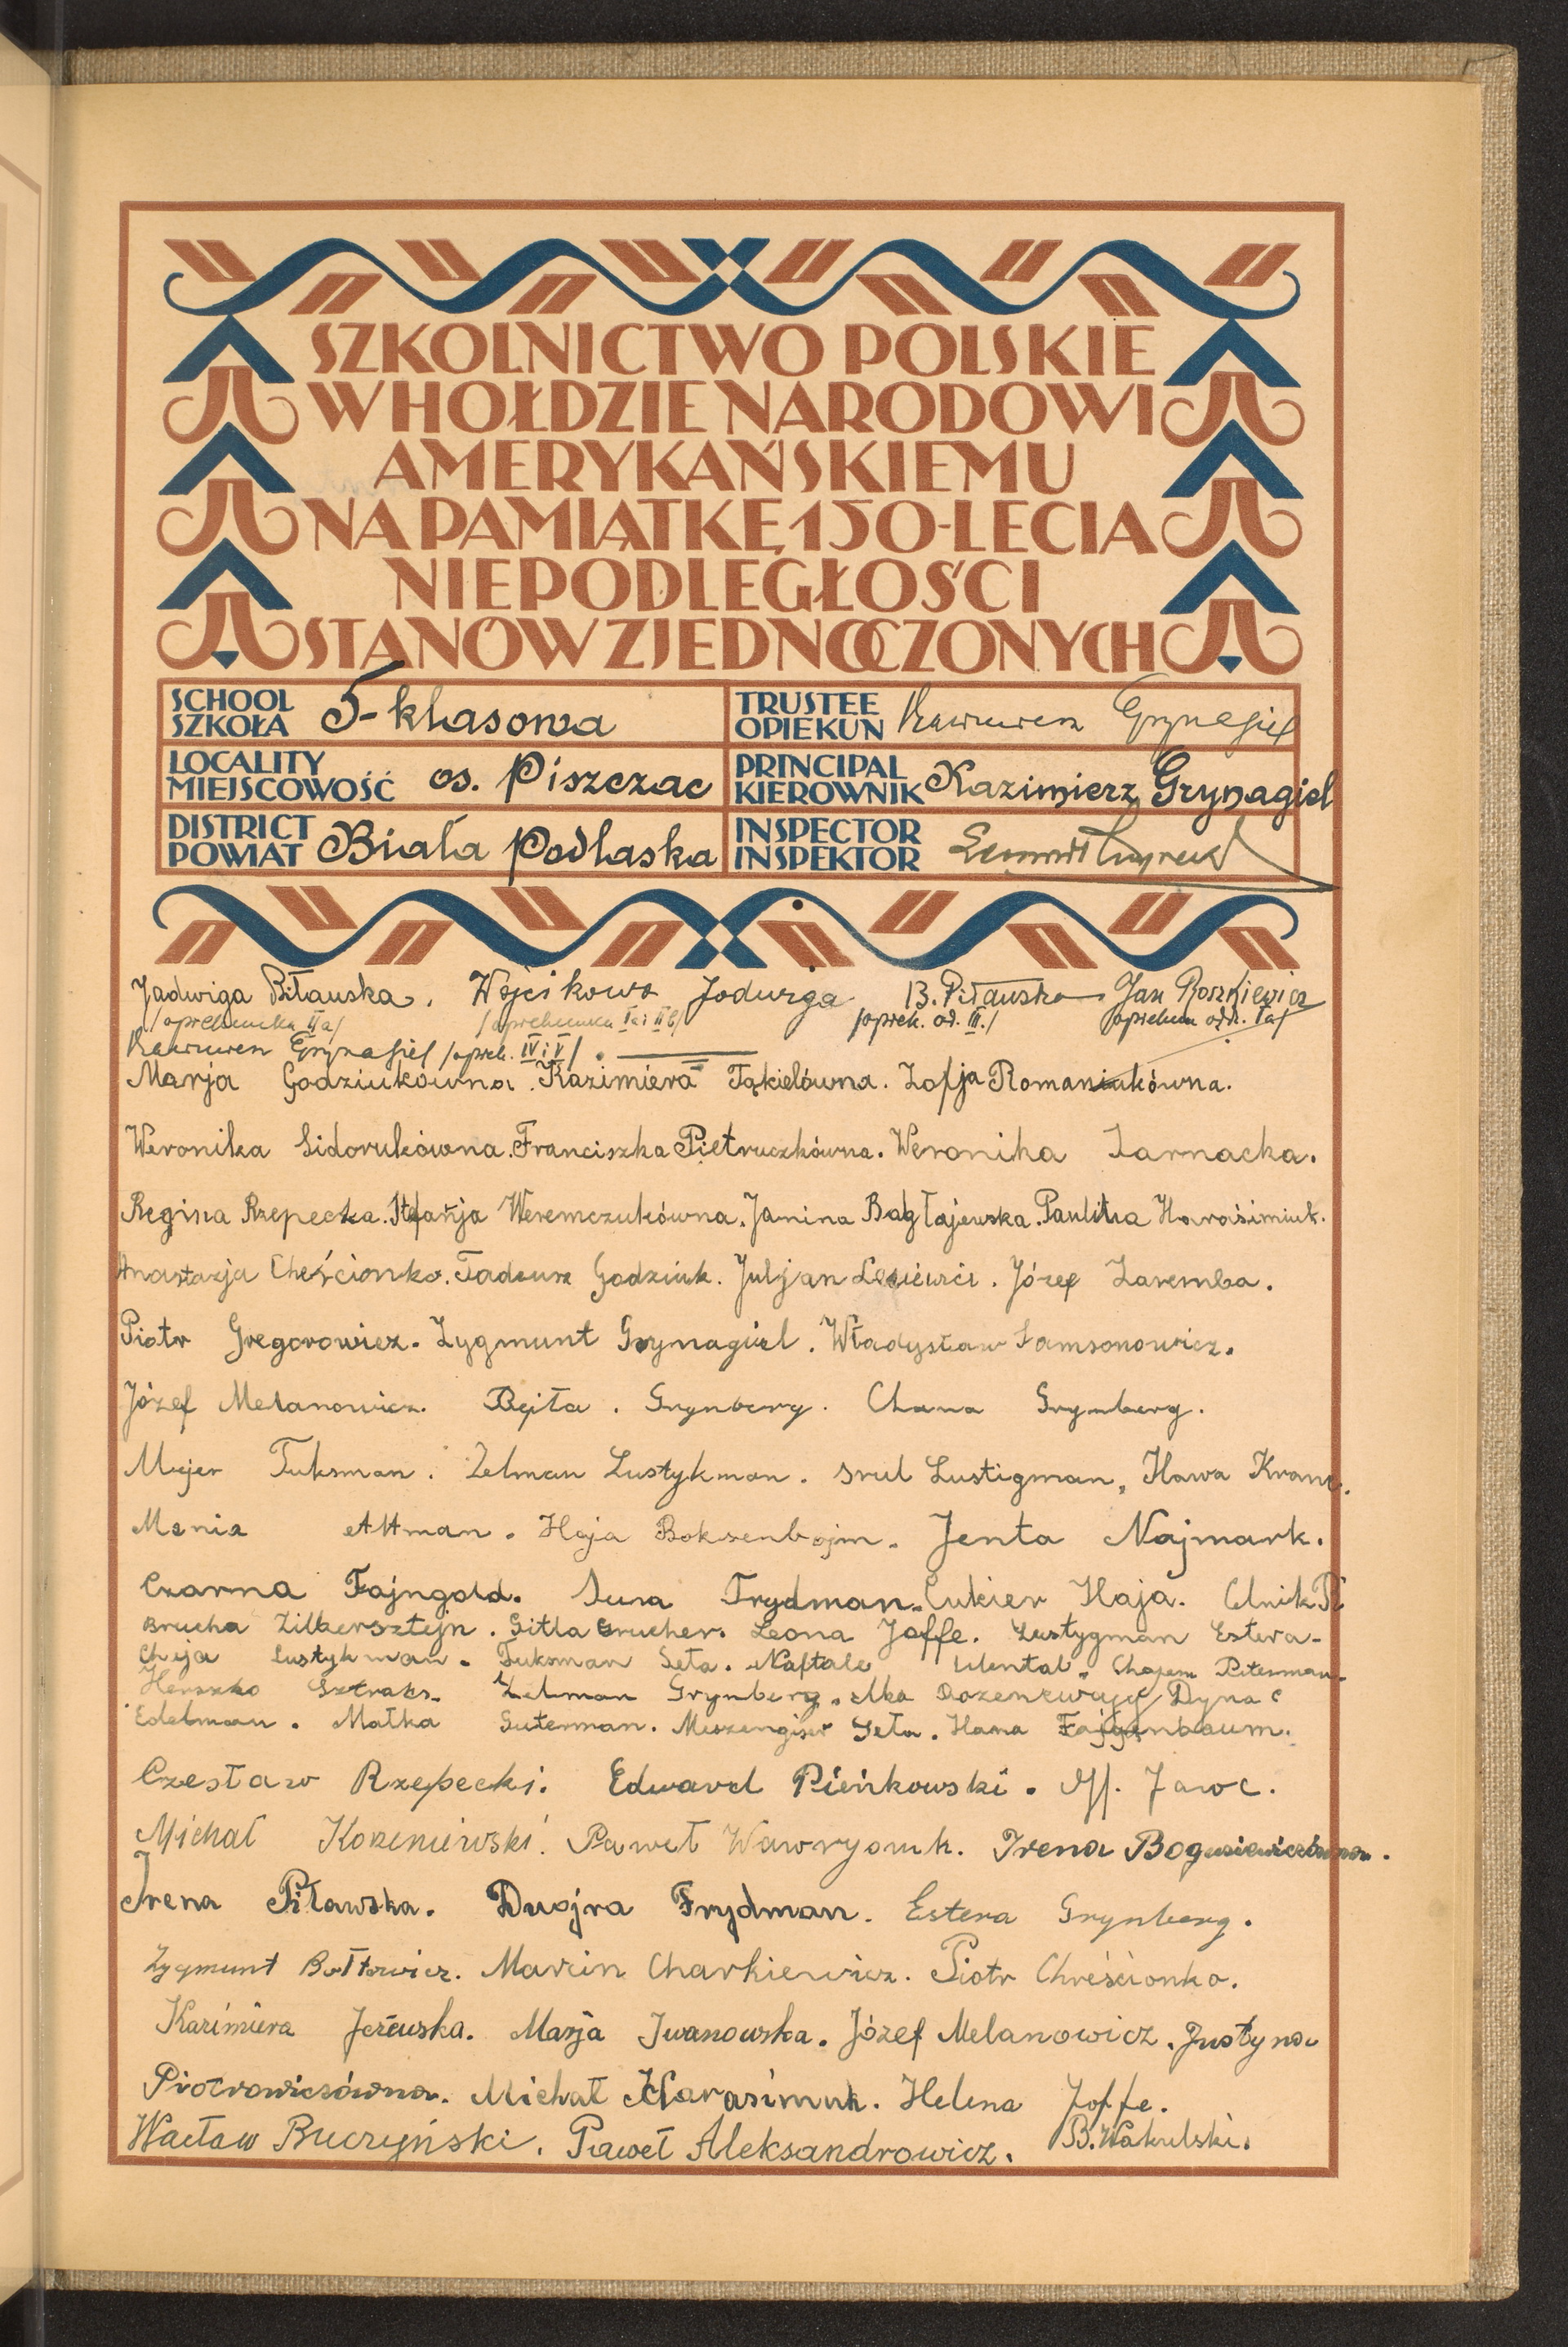 SZKOLNICTWO POLSKIE
W HOŁDZIE NARODOWI
AMERYKAŃSKIEMU
NA PAMIĄTKĘ 150-LECIA
NIEPODLEGŁOŚCI
STANÓW ZJEDNOCZONYCH
SCHOOL SZKOŁA 5-klasowa
TRUSTEE OPIEKUN Grynagiel
LOCALITY MIEJSCOWOŚĆ os. Piszczac
PRINCIPAL KIEROWNIK Kazimierz Grynagiel
DISTRICT POWIAT Biała Podlaska
INSPECTOR INSPEKTOR
Jadwiga Piławska. Wójcikowa Jadwiga B. Piławska Jan Roszkiewicz
/opiekunka IIa/ /opiekunka Ib i IIb/ /opiek. od. III./ /opiekun odz. Ia/
Grynagiel /opiek. IV i V/.
Marja Godziukówna. Kazimiera Tąkielówna. Zofja Romaniukówna.
Weronika Sidorukówna. Franciszka Pietruczkówna. Weronika Tarnacka.
Regina Rzepecka. Stefanja Weremczukówna. Janina Bagłajewska. Paulina Harasimiuk.
Anastazja Chrścionko. Tadeusz Godziuk. Juljan Lesiewicz. Józef Zaremba.
Piotr Gregorowicz. Zygmunt Grynagiel. Władysław Samsonowicz.
Józef Melanowicz. Bejła. Grynberg. Chana Grynberg.
Mejer Tuksman. Zelman Lustykman. Srul Lustigman, Hawa Kranc.
Mania Altman. Haja Boksenbojm. Jenta Najmark.
Czarna Fajngold. Sura Frydman. Cukier Haja. Celnik
Brucha Zilbersztejn. Gitla Brucher. Leona Joffe. Lustygman Estera-
Chaja Lustykman. Tuksman Seta. Naftale Chajem Piterman.
Herszko Sztraks. Zelman Grynberg. Dyna
Edelman. Małka Suterman. Meszengiser Seta. Hana Fajgenbaum.
Czesław Rzepecki. Edward Pieńkowski. Jawoc.
Michał Korzeniewski. Paweł Wawryniuk. Irena Bogusiewiczówna.
Irena Piławska. Dwojra Frydman. Estera Grynberg.
Zygmunt Bołtowicz. Marcin Charkiewicz. Piotr Chrésčionko.
Kazimiera Jeżewska. Marja Iwanowska. Józef Melanowicz. Justyna
Piotrowiczówna. Michał Harasimuk. Helena Joffe.
Wacław Buczyński. Paweł Aleksandrowicz. B. Wakulski.